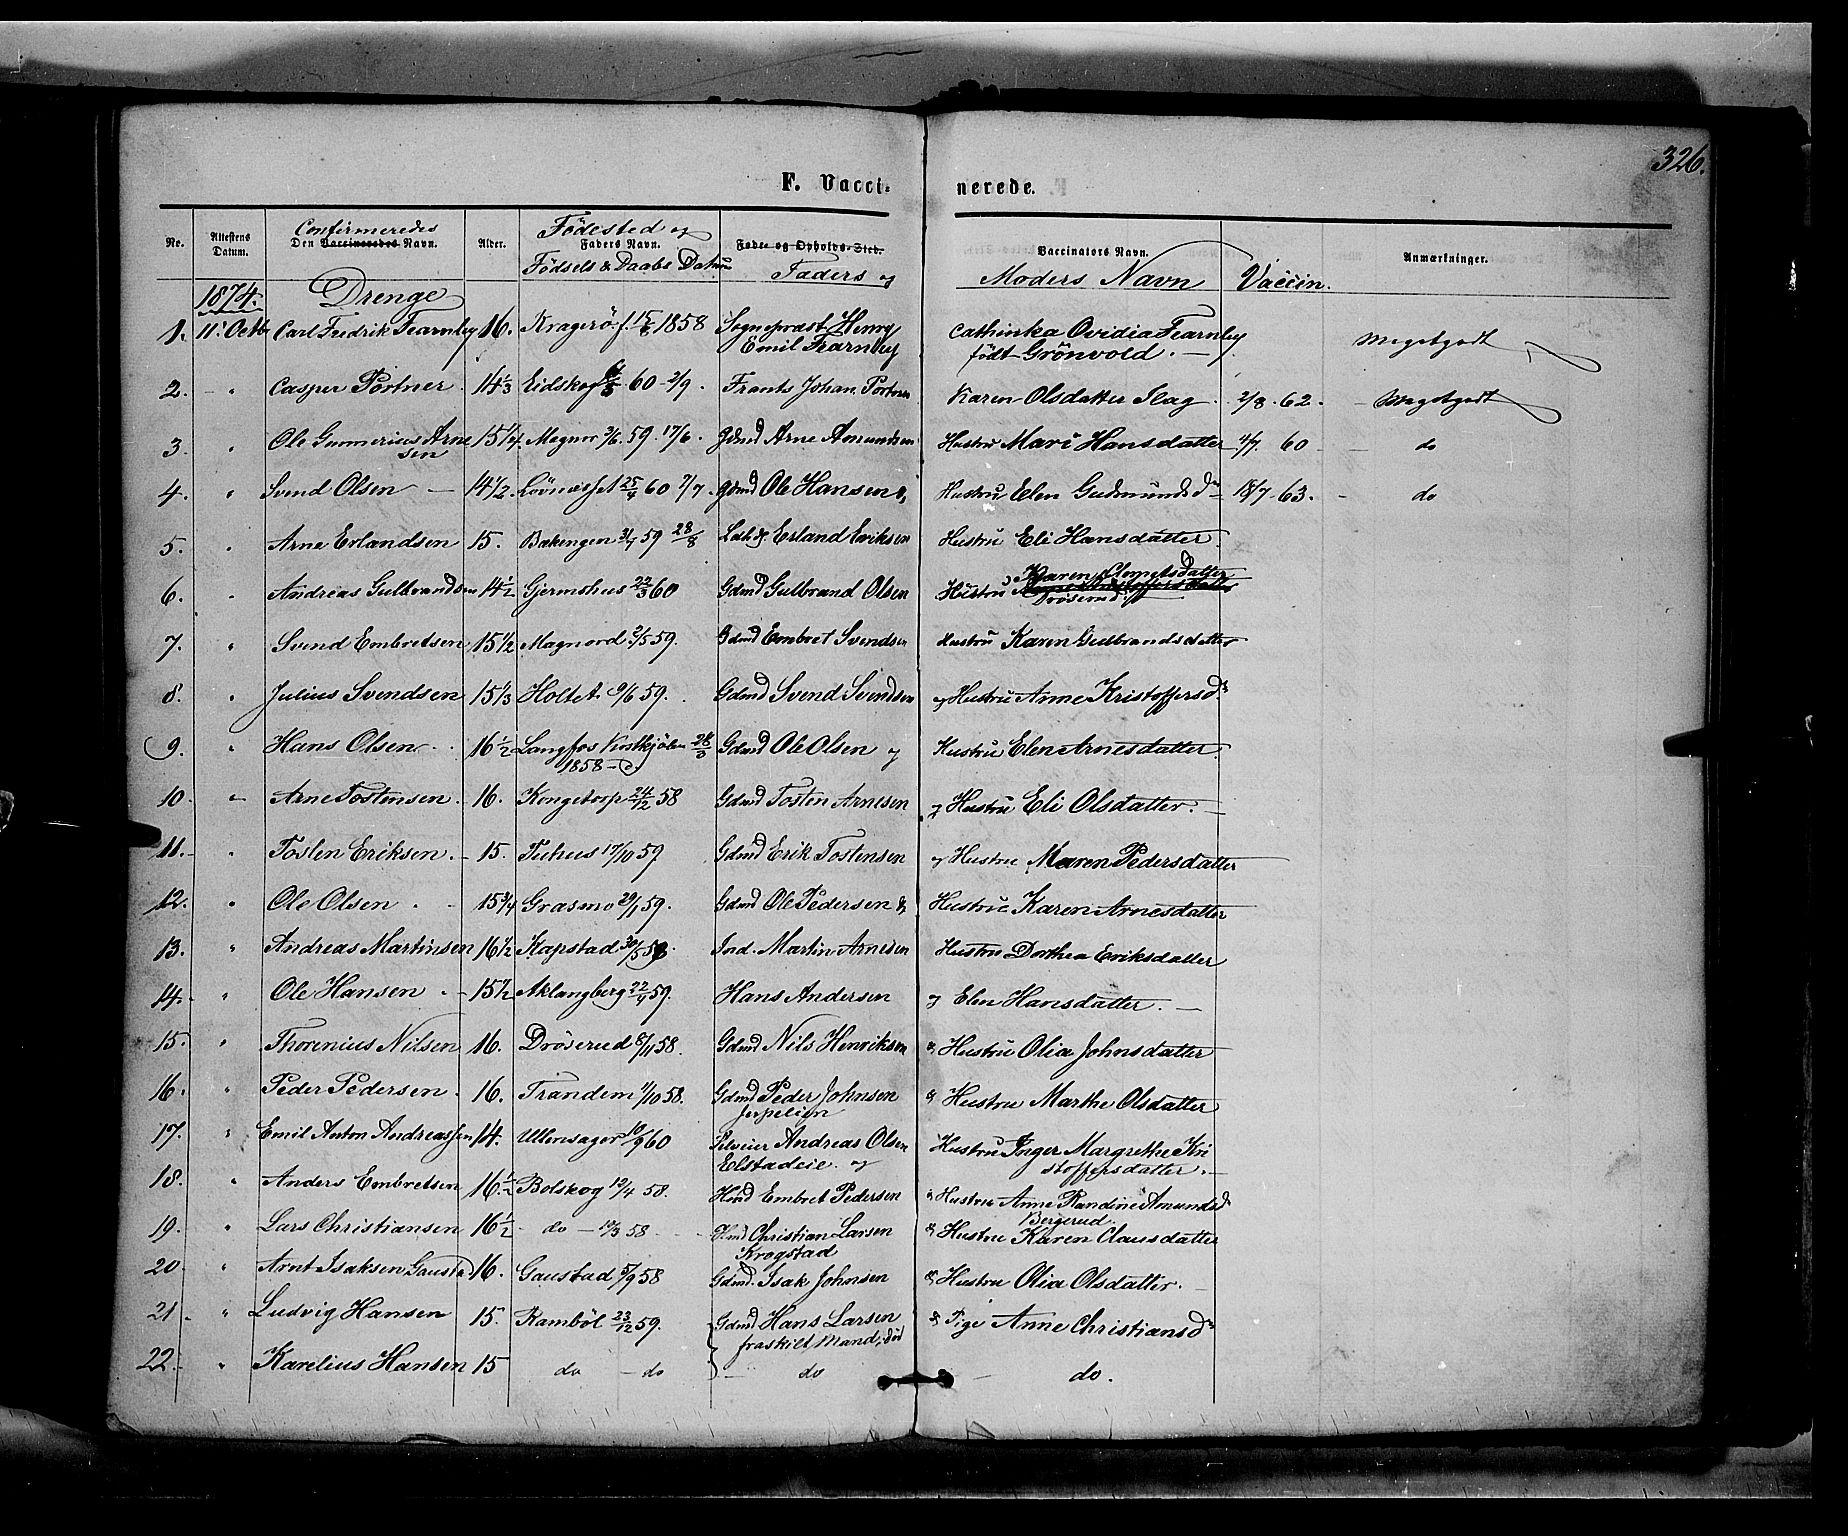 326.
F. Vacci- nerede.
No. Attestens Datum. Confirmeredes Den Vaccineredes Navn. Alder. Födested og Faders Navn. Födsels & Daabs Datum Føde- og Opholds-Sted. Faders og Vaccinators Navn. Moders Navn Vaccin. Anmærkninger.
1874. Drenge
1. 11. Octb Carl Fredrik Fearnley 16. Kragerö f. 15/8 1858 Sognepræst Henry Cathinka Ovidia Fearnley Megetgodt
Emil Fearnley född Grönvold. —
2. " Casper Portner. 14 1/3 Eidskog 60 - 2/9. Frants Johan Portner Karen Olsdatter Slag. 2/8. 62. — Megetgodt
3. " Ole Gunnerius Arne 15 1/4. Magnor 3/6. 59. 17/6. Gdmd Arne Amundsen Hustru Mari Hansdatter 4/7 60 — do
sen
4. " Svend Olsen — 14 1/2. Lövnæsset 25/4 60 7/7. Gdmd Ole Hansen & Hustru Elen Gudmundsd. 18/7 63. — do
5. " Arne Erlandsen 15. 59 28/8 Erland Eriksen Hustru Eli Hansdatter.
6. " Andreas Gulbrandsen 14 1/2 Gjermshus 22/3 60 Gdmd Gulbrand Olsen Hustru Karen
7. " Svend Embretsen 15 1/2 Magnord 2/5 59. Gdmd Embret Svendsen Hustru Karen Gulbrandsdatter
8. " Julius Svendsen 15 1/3 Holtet 9/6 59. Gdmd Svend Svendsen og Hustru Anne Kristoffersd.
9. " Hans Olsen 16 1/2 Langfos 28/3 Gdmd Ole Olsen og Hustru Elen Arnesdatter
1858
10. " Arne Tostensen. 16. Kongetorp 24/12 58 Gdmd Tosten Arnesen og Hustru Eli Olsdatter. —
11. " Tosten Eriksen. — 15. Tuhus 17/10 59 Gdmd Erik Tostensen og Hustru Maren Pedersdatter
12. " Ole Olsen. 15 3/4 Grasmo 29/1 59. Gdmd Ole Pedersen & Hustru Karen Arnesdatter
13. " Andreas Martinsen 16 1/2 Kapstad 30/5 58. Ind. Martin Arnesen Hustru Dorthea Eriksdatter
14. " Ole Hansen. — 15 1/2 Aklangberg 22/4 59. Hans Andersen og Elen Hansdatter. —
15. " Thorenius Nilsen 16. Dröserud 8/11 58. Gdmd Nils Henriksen & Hustru Olia Johnsdatter
16. " Peder Pedersen. 16. Trandem 11/10 58. Gdmd Peder Johnsen & Hustru Marthe Olsdatter
17. " Emil Anton Andreassen 14. Ullensager 10/9 60 Andreas Olsen Hustru Inger Margrethe Kri
Elstadeie og stoffersdatter. —
18. " Anders Embretsen 16 1/2 Bolskog 19/4 58. Hmd Embret Pedersen & Hustru Anne Randine Amundsd
Bergerud.
19. " Lars Christiansen 16 1/2 do — 10/3 58 Hmd Christian Larsen & Hustru Karen Clausdatter
Krogstad
20. " Arnt Isaksen Gaustad 16. Gaustad 5/9 58 Gdmd. Isak Johnsen & Hustru Olia Olsdatter. —
21. " Ludvig Hansen 15. Ramböl 23/12 59. Gdmd Hans Larsen & Pige Anne Christiansd.
fraskilt Mand, död
22. " Karelius Hansen 15 do — do — do — do.